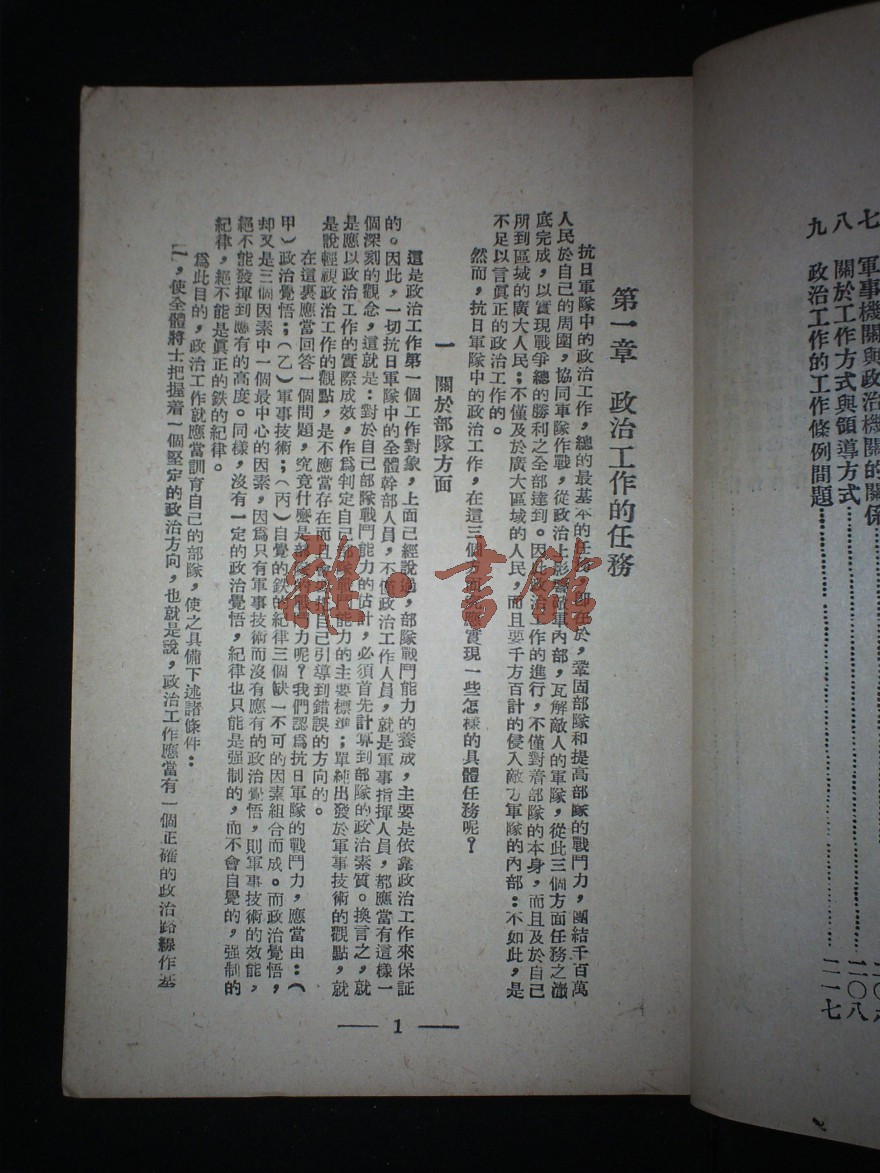 七　軍事機關與政治機關的關係
八　關於工作方式與領導方式……二〇八
九　政治工作的工作條例問題……二一七
第一章　政治工作的任務
抗日軍隊中的政治工作，總的最基本的任務，即在於，鞏固部隊和提高部隊的戰鬥力，團結千百萬
人民於自己的周圍，協同軍隊作戰，從政治上影響敵軍內部，瓦解敵人的軍隊，從此三個方面任務之澈
底完成，以實現戰爭總的勝利之全部達到。因此政治工作的進行，不僅對着部隊的本身，而且及於自己
所到區域的廣大人民；不僅及於廣大區域的人民，而且要千方百計的侵入敵方軍隊的內部：不如此，是
不足以言眞正的政治工作的。
然而，抗日軍隊中的政治工作，在這三個方面應實現一些怎樣的具體任務呢？
一　關於部隊方面
這是政治工作第一個工作對象，上面已經說過，部隊戰鬥能力的養成，主要是依靠政治工作來保証
的。因此，一切抗日軍隊中的全體幹部人員，不僅政治工作人員，就是軍事指揮人員，都應當有這樣一
個深刻的觀念，這就是：對於自己部隊戰鬥能力的估計，必須首先計算到部隊的政治素質。換言之，就
是應以政治工作的實際成效，作爲判定自己部隊戰鬥能力的主要標準；單純出發於軍事技術的觀點，就
是說輕視政治工作的觀點，是不應當存在而且會把自己引導到錯誤的方向的。
在這裏應當回答一個問題，究竟什麼是部隊的戰鬥力呢？我們認爲抗日軍隊的戰鬥力，應當由：（
甲）政治覺悟；（乙）軍事技術；（丙）自覺的鉄的紀律三個缺一不可的因素組合而成。而政治覺悟，
却又是三個因素中一個最中心的因素，因爲只有軍事技術而沒有應有的政治覺悟，則軍事技術的效能，
絕不能發揮到應有的高度。同樣，沒有一定的政治覺悟，紀律也只能是强制的，而不會自覺的，强制的
紀律，絕不能是眞正的鉄的紀律。
爲此目的，政治工作就應當訓育自己的部隊，使之具備下述諸條件：
一，使全體將士把握着一個堅定的政治方向，也就是說，政治工作應當有一個正確的政治路線作基
— 1 —
雜·書館